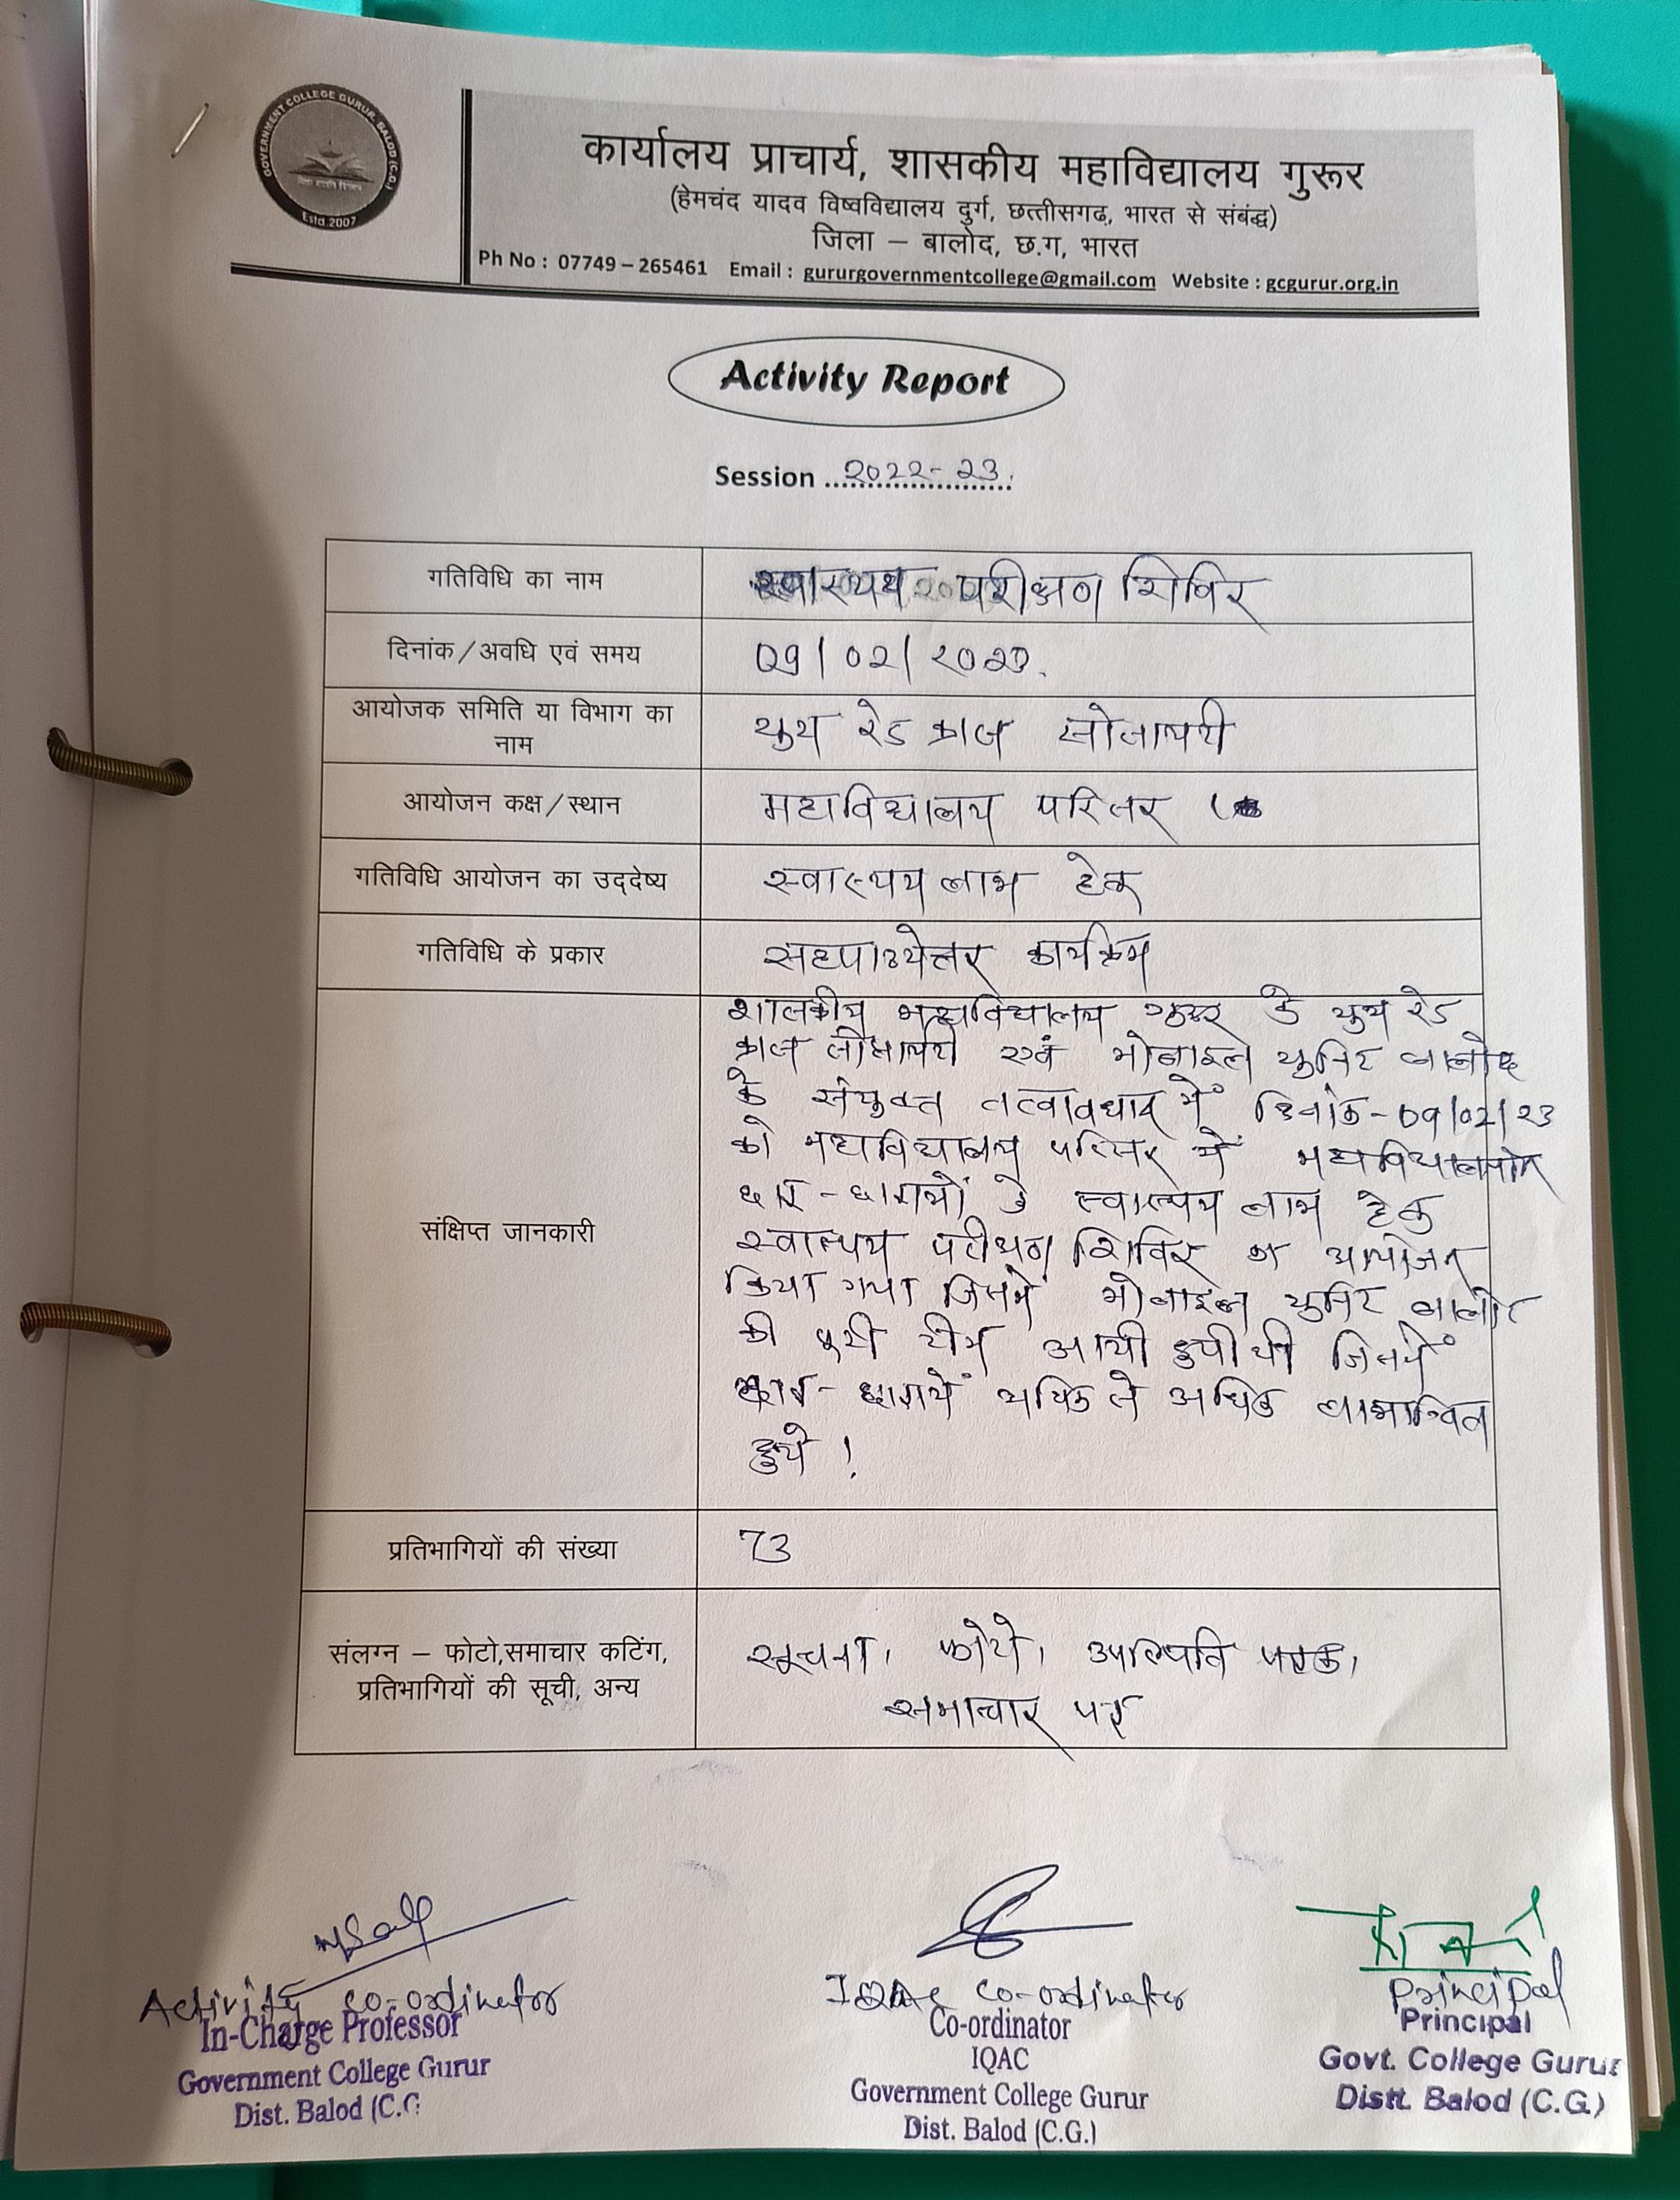 GOVERNMENT COLLEGE GURUR, BALOD (C.G.)
Estd 2007
कार्यालय प्राचार्य, शासकीय महाविद्यालय गुरूर
(हेमचंद यादव विष्वविद्यालय दुर्ग, छत्तीसगढ़, भारत से संबंद्ध)
जिला – बालोद, छ.ग, भारत
Ph No : 07749 – 265461 Email : gururgovernmentcollege@gmail.com Website : gcgurur.org.in
Activity Report
Session 2022-23.
गतिविधि का नाम
स्वास्थ्य परीक्षण शिविर
दिनांक/अवधि एवं समय
09/02/2023.
आयोजक समिति या विभाग का
नाम
युथ रेड क्रास सोसायटी
आयोजन कक्ष/स्थान
महाविद्यालय परिसर
गतिविधि आयोजन का उद्देष्य
स्वास्थ्य लाभ हेतु
गतिविधि के प्रकार
सहपाठ्येत्तर कार्यक्रम
संक्षिप्त जानकारी
शासकीय महाविद्यालय गुरूर के युथ रेड
क्रास सोसायटी एवं मोबाइल युनिट बालोद
के संयुक्त तत्वावधान में दिनांक-09/02/23
को महाविद्यालय परिसर में महाविद्यालयीन
छात्र-छात्राओं के स्वास्थ्य लाभ हेतु
स्वास्थ्य परीक्षण शिविर का आयोजन
किया गया जिसमें मोबाइल युनिट बालोद
की पूरी टीम आयी हुयी थी जिसमें
छात्र-छात्रायें अधिक से अधिक लाभान्वित
हुये !
प्रतिभागियों की संख्या
73
संलग्न – फोटो,समाचार कटिंग,
प्रतिभागियों की सूची, अन्य
सूचना, फोटो, उपस्थिति पत्रक,
समाचार पत्र
Activity co-ordinator
In-Charge Professor
Government College Gurur
Dist. Balod (C.G
IQAC co-ordinator
Co-ordinator
IQAC
Government College Gurur
Dist. Balod (C.G.)
Principal
Principal
Govt. College Gurur
Distt. Balod (C.G.)